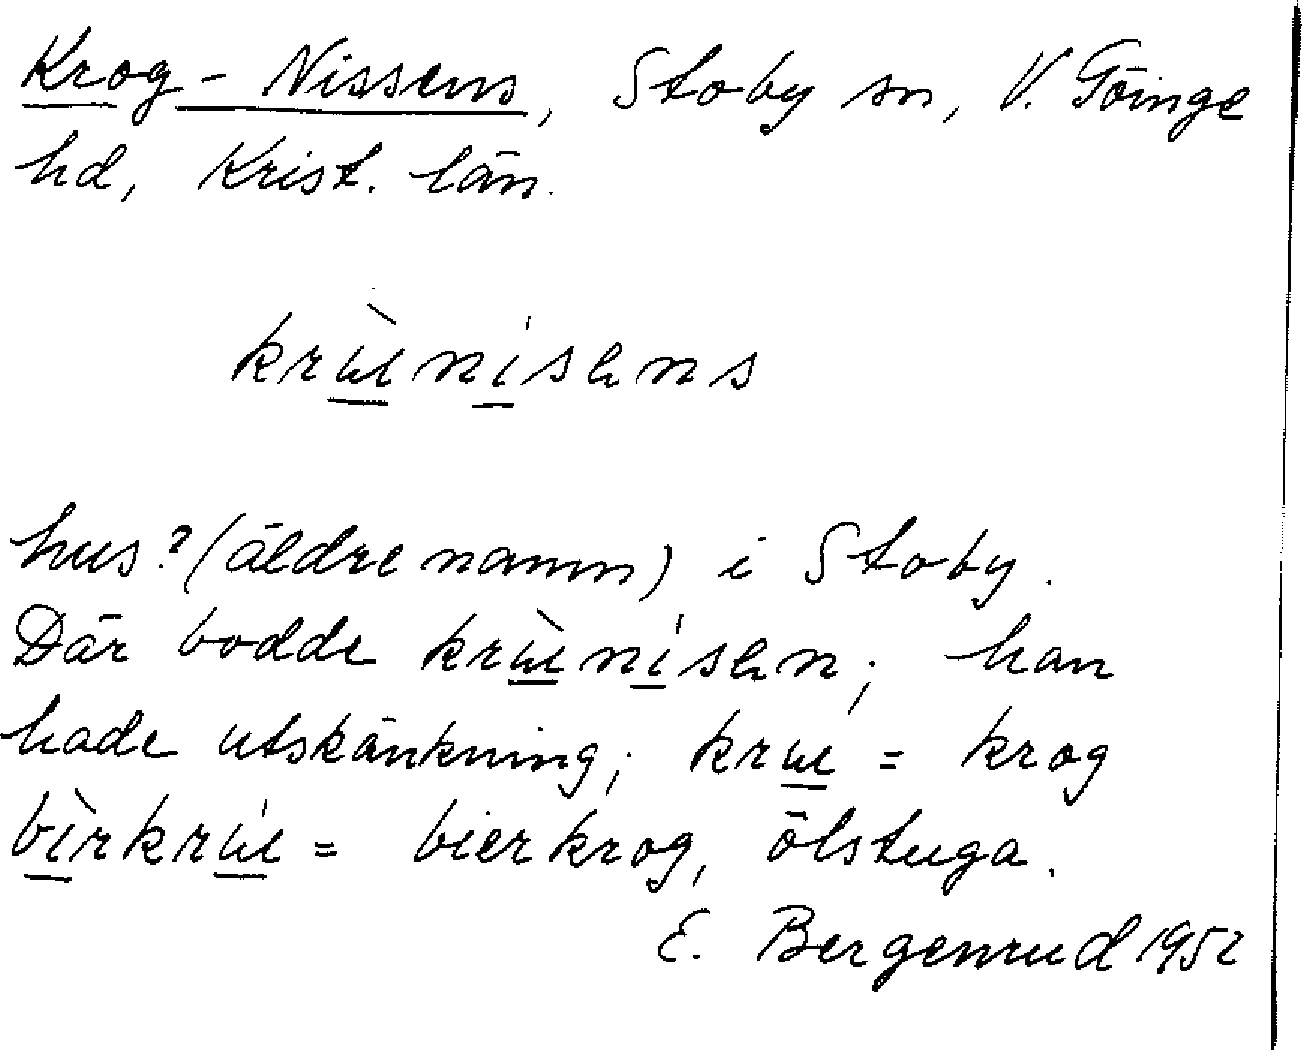 Krog-Nissens, Stoby sn, V. Göinge
hd, Krist. län.
krɯ̀nísɐns
hus? (äldre namn) i Stoby.
Där bodde krɯ̀nísɐn; han
hade utskänkning; krɯ́ = krog
bìrkrɯ́ = bierkrog, ölstuga.
E. Bergenrud 1952